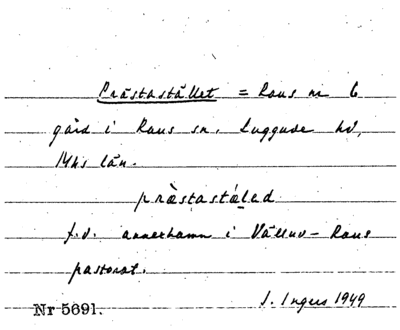 Prästastället = Raus nr 6
gård i Raus sn. Luggude hd,
Mhs län.
præstastáled
f.d. annexhemn i Välluv-Raus
pastorat.
I. Ingers 1949
Nr 5691.